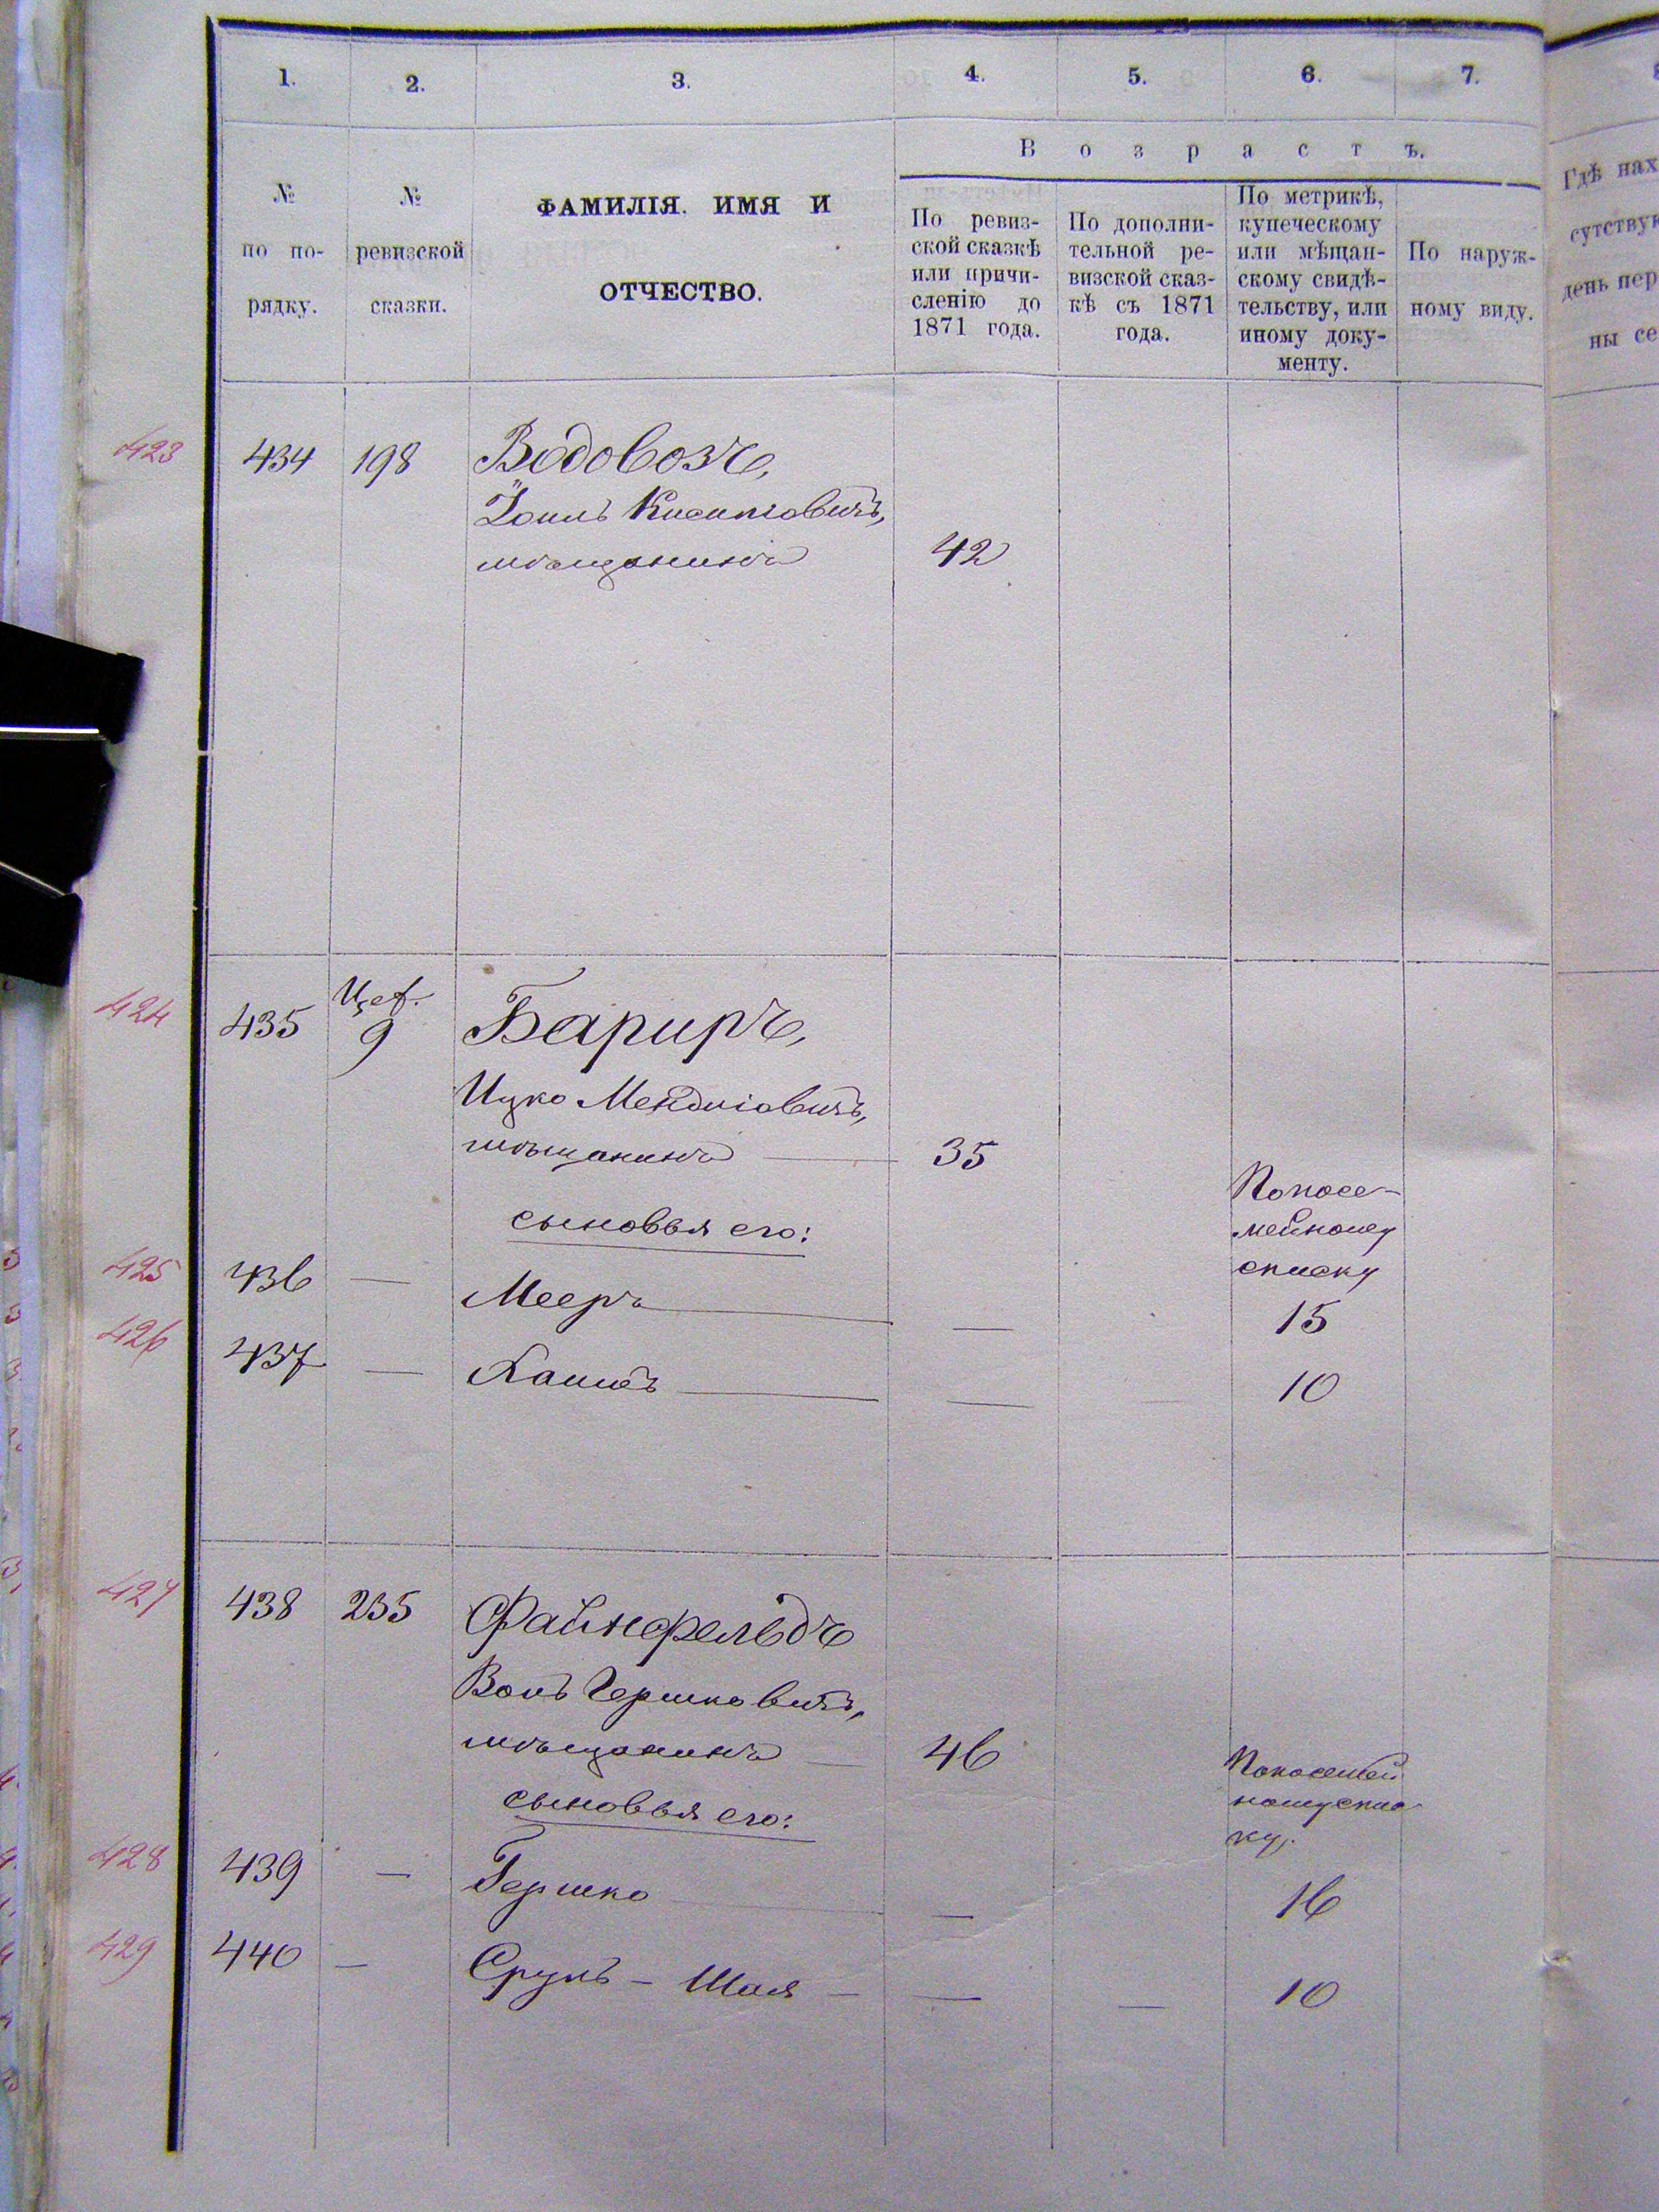 1. 2. 3. 4. 5. 6. 7.
В о з р а с т ъ.
№
по по-
рядку.
№
ревизской
сказки.
ФАМИЛІЯ. ИМЯ И
ОТЧЕСТВО.
По ревиз-
ской сказкѣ
или причи-
сленію до
1871 года.
По дополни-
тельной ре-
визской сказ-
кѣ съ 1871
года.
По метрикѣ,
купеческому
или мѣщан-
скому свидѣ-
тельству, или
иному доку-
менту.
По наруж-
ному виду.
Гдѣ нах
сутствую
день пер
ны се
423 434 198 Водовозъ,
мѣщанинъ 42
424 435 9 Бариръ,
Ицко Мендліовичъ,
мѣщанинъ — 35
сыновья его:
По посе-
мейному
списку
425 436 — Мееръ — — 15
426 437 — — — 10
427 438 235 Файнфельдъ
Волъ Гершковичъ,
мѣщанинъ — 46
сыновья его:
По посемей
ному спис
ку.
428 439 — Гершко — — 16
429 440 — Сруль – Шая — — — 10